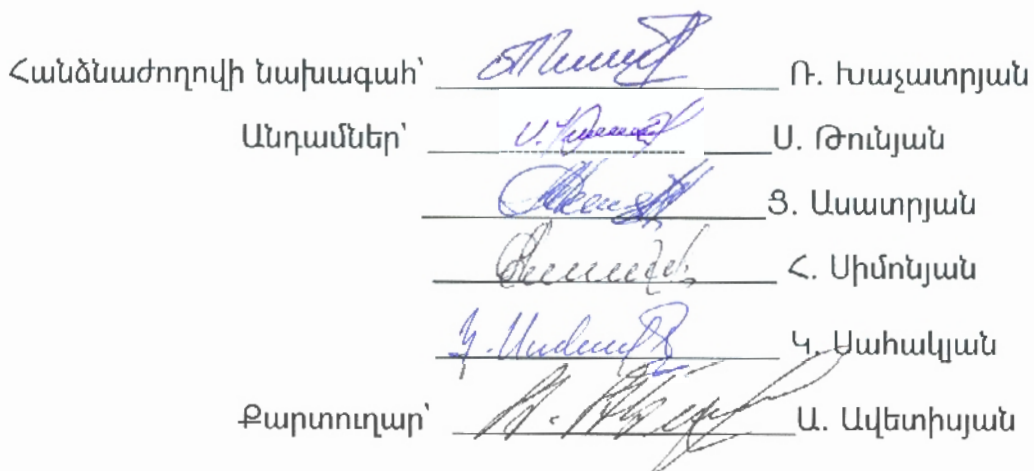 Հանձնաժողովի նախագահ՝ Ռ. Խաչատրյան
Անդամներ՝ Ս. Թունյան
Ց. Ասատրյան
Հ. Սիմոնյան
Կ. Սահակյան
Քարտուղար՝ Ա. Ավետիսյան